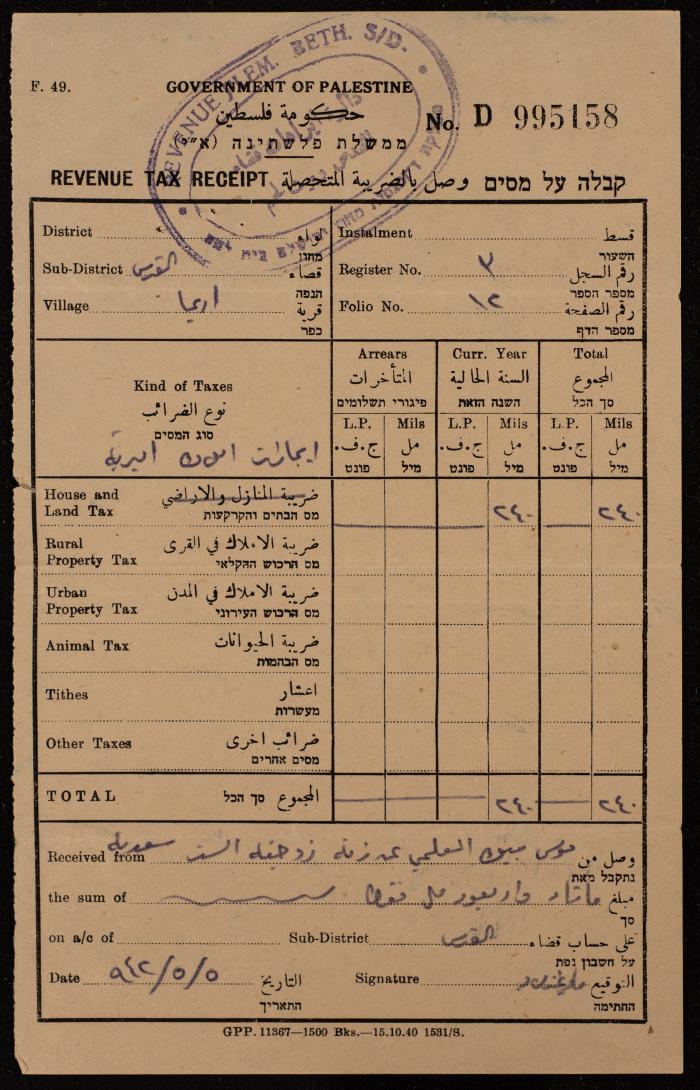 REVENUE J'LEM. BETH. S/D.
F. 49.
GOVERNMENT OF PALESTINE
حكومة فلسطين
ממשלת פלשתינה (א״י)
No. D 995158
REVENUE TAX RECEIPT وصل بالضريبة المتحصلة קבלה על מסים
District لواء
מחוז
Sub-District القدس قضاء
הנפה
Village اريحا قرية
כפר
Instalment قسط
השעור
Register No. ٣ رقم السجل
מספר הספר
Folio No. ١٢ رقم الصفحة
מספר הדף
Kind of Taxes
نوع الضرائب
סוג המסים
ايجارات املاك اميرية
Arrears
المتأخرات
פיגורי תשלומים
Curr. Year
السنة الحالية
השנה הזאת
Total
المجموع
סך הכל
L.P. Mils L.P. Mils L.P. Mils
ج.ف. مل ج.ف. مل ج.ف. مل
פונט מיל פונט מיל פונט מיל
House and ضريبة المنازل والاراضي
Land Tax מס הבתים והקרקעות
٢٤٠ ٢٤٠
Rural ضريبة الاملاك في القرى
Property Tax מס הרכוש החקלאי
Urban ضريبة الاملاك في المدن
Property Tax מס הרכוש העירוני
Animal Tax ضريبة الحيوانات
מס הבהמות
Tithes اعشار
מעשרות
Other Taxes ضرائب اخرى
מסים אחרים
TOTAL المجموع סך הכל ٢٤٠ ٢٤٠
Received from موسى العلمي عن زوجته الست سعدية وصل من
נתקבל מאת
the sum of مائتان واربعون مل فقط مبلغ
סך
on a/c of Sub-District القدس على حساب قضاء
על חשבון נפת
Date ٩٤٢/٥/٥ التاريخ
התאריך
Signature التوقيع
החתימה
GPP. 11367—1500 Bks.—15.10.40 1531/S.